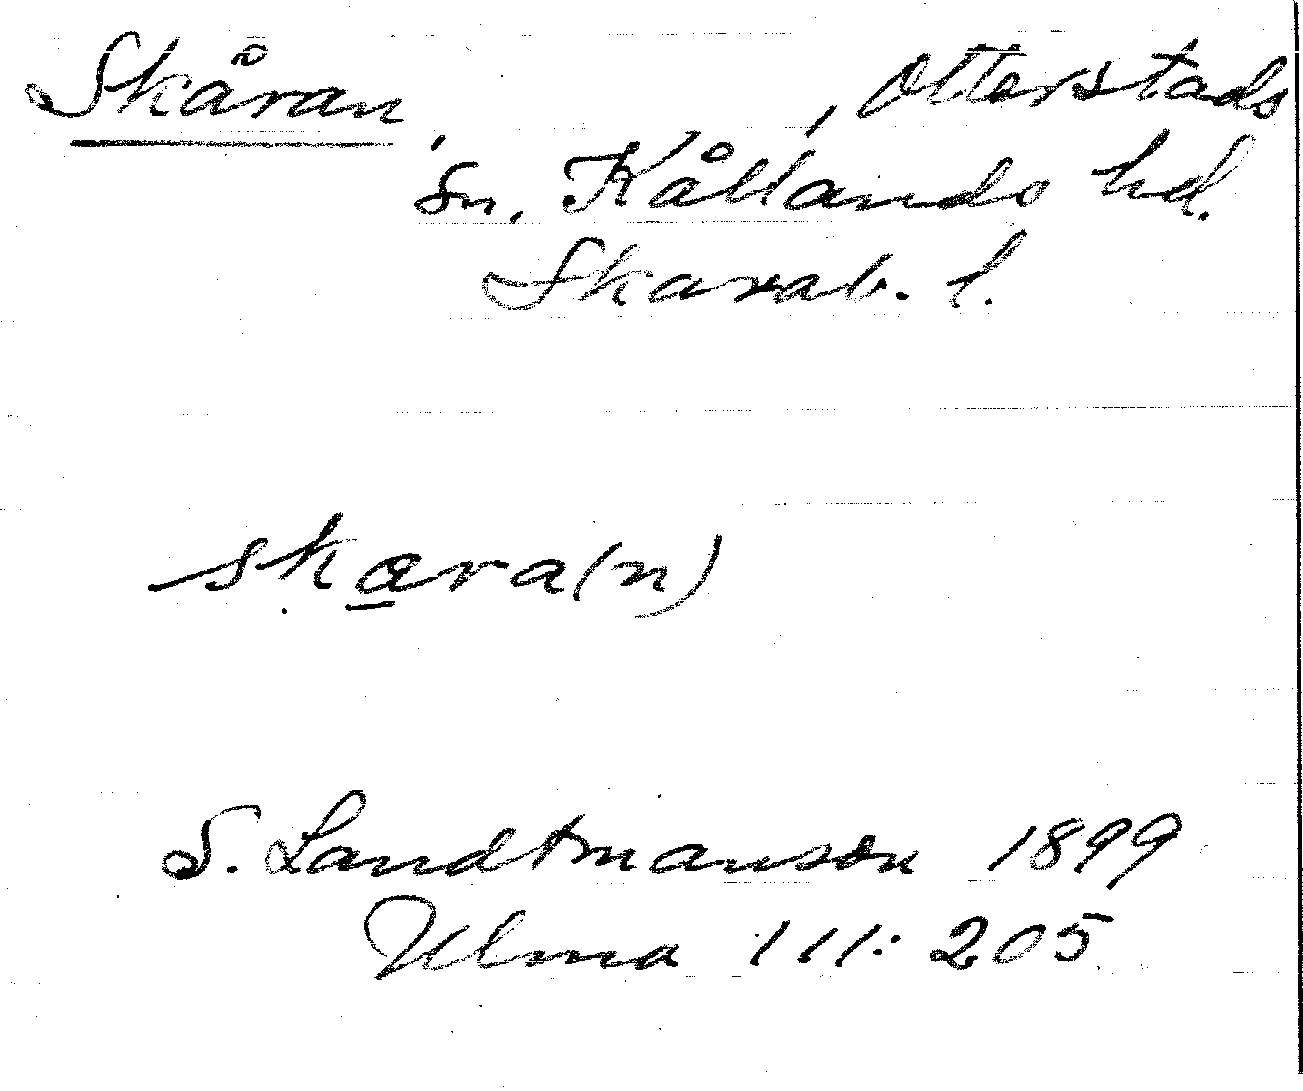 Skåran, , Otterstads
sn. Kållands hd.
Skarab. l.
skæra(n)
S. Landtmanson 1899
Ulma 111:205